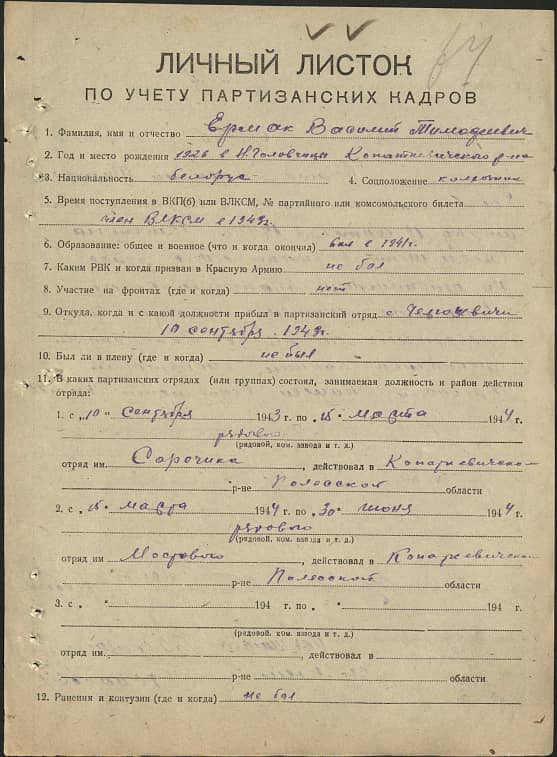 ЛИЧНЫЙ ЛИСТОК
ПО УЧЕТУ ПАРТИЗАНСКИХ КАДРОВ
1. Фамилия, имя и отчество Ермак Василий Тимофеевич
2. Год и место рождения 1926 г Н. Головчицы Копаткевичского р-на
3. Национальность белорус 4. Соцположение колхозник
5. Время поступления в ВКП(б) или ВЛКСМ, № партийного или комсомольского билета
член ВЛКСМ с 1943г.
6. Образование: общее и военное (что и когда окончил) 6кл в 1941г.
7. Каким РВК и когда призван в Красную Армию не был
8. Участие на фронтах (где и когда) нет
9. Откуда, когда и с какой должности прибыл в партизанский отряд с
10 сентября 1943г.
10. Был ли в плену (где и когда) не был
11. В каких партизанских отрядах (или группах) состоял, занимаемая должность и район действия
отряда:
1. с „10" сентября 1943 г. по „15" Марта 1944 г.
рядовой
(рядовой, ком. взвода и т. д.)
отряд им. Сорочика, действовал в Копаткевичском
р-не Полесской области
2. с „15" марта 1944 г. по „30" июня 1944 г.
рядовой
(рядовой, ком. взвода и т. д.)
отряд им. Мостового, действовал в Копаткевичском
р-не Полесской области
3. с „ " 194 г. по „ " 194 г.
(рядовой, ком. взвода и т. д.)
отряд им. , действовал в
р-не области
12. Ранения и контузии (где и когда) не был